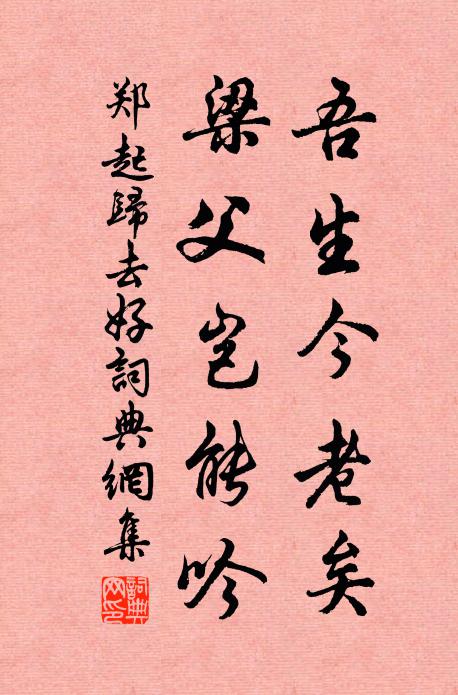 吾生今老矣
梁父岂能吟
郑起歸去好詞典網集
詞典网印